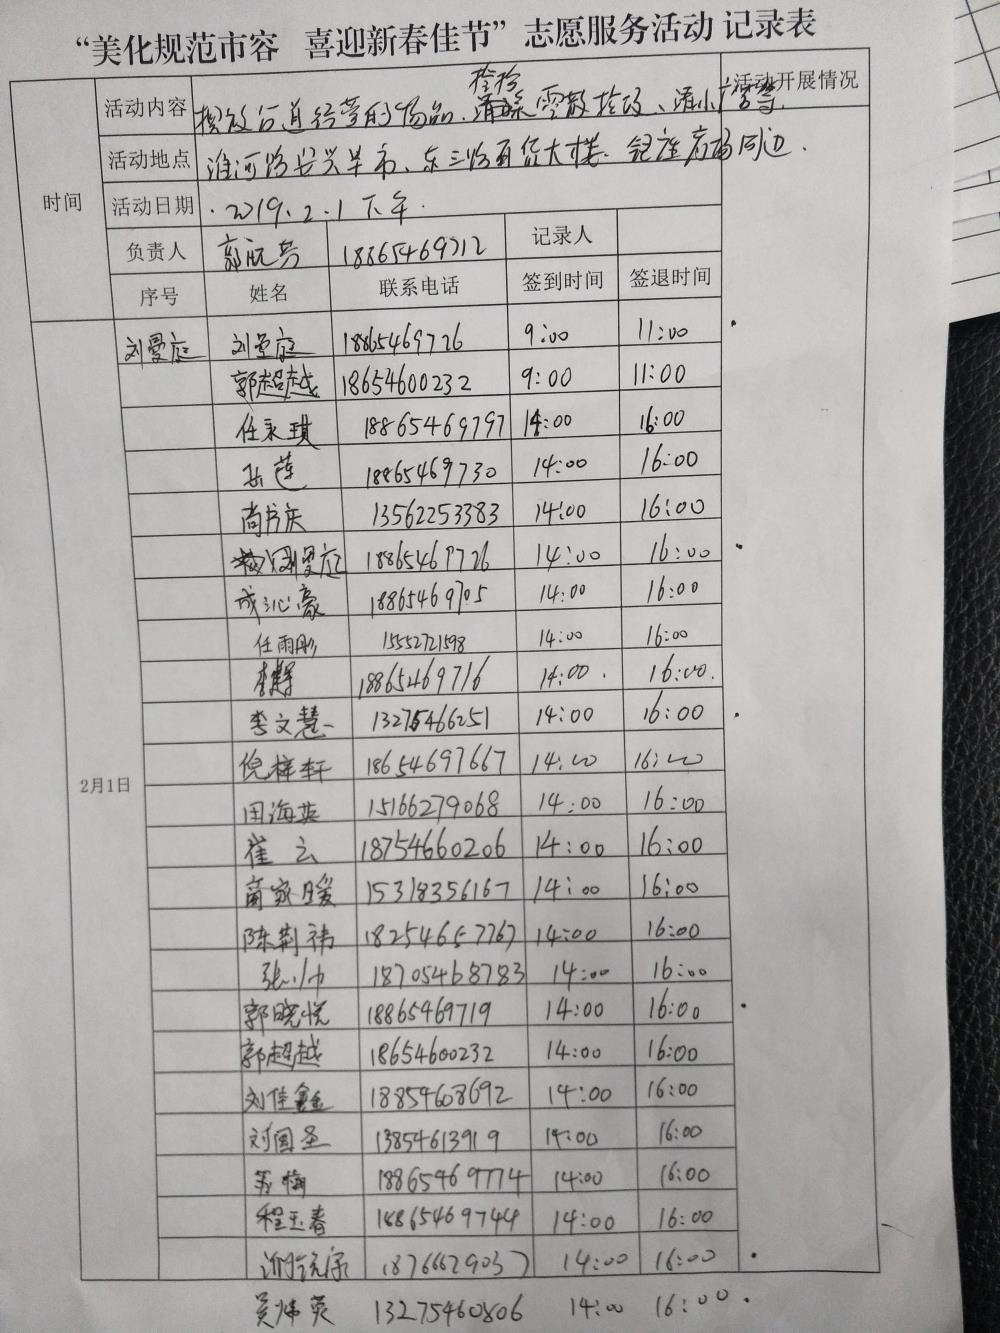 “美化规范市容 喜迎新春佳节”志愿服务活动 记录表
时间 活动内容 活动开展情况
清除 零散 清小广告等
活动地点 淮河路 东三路百货大楼、银座商场周边.
活动日期 2019.2.1 下午.
负责人 18865469712 记录人
序号 姓名 联系电话 签到时间 签退时间
2月1日
刘曼庭 刘曼庭 18865469726 9:00 11:00
郭超越 18654600232 9:00 11:00
任永琪 18865469797 14:00 16:00
岳莲 18865469730 14:00 16:00
尚书庆 13562253383 14:00 16:00
刘曼庭 18865469726 14:00 16:00
成沁豪 18865469705 14:00 16:00
任雨彤 15552721598 14:00 16:00
18865469716 14:00. 16:00.
李文慧 13275466251 14:00 16:00
倪梓轩 18654697667 14:00 16:00
田海英 15166279068 14:00 16:00
崔云 18754660206 14:00 16:00
苗家瑷 15318356167 14:00 16:00
陈荆祎 18254657767 14:00 16:00
张小巾 18705468783 14:00 16:00
郭晓悦 18865469719 14:00 16:00
郭超越 18654600232 14:00 16:00
刘佳鑫 18854608692 14:00 16:00
刘国圣 13854613919 14:00 16:00
18865469774 14:00 16:00
程玉春 18865469744 14:00 16:00
18766629037 14:00 16:00
吴炜英 13275460806 14:00 16:00.